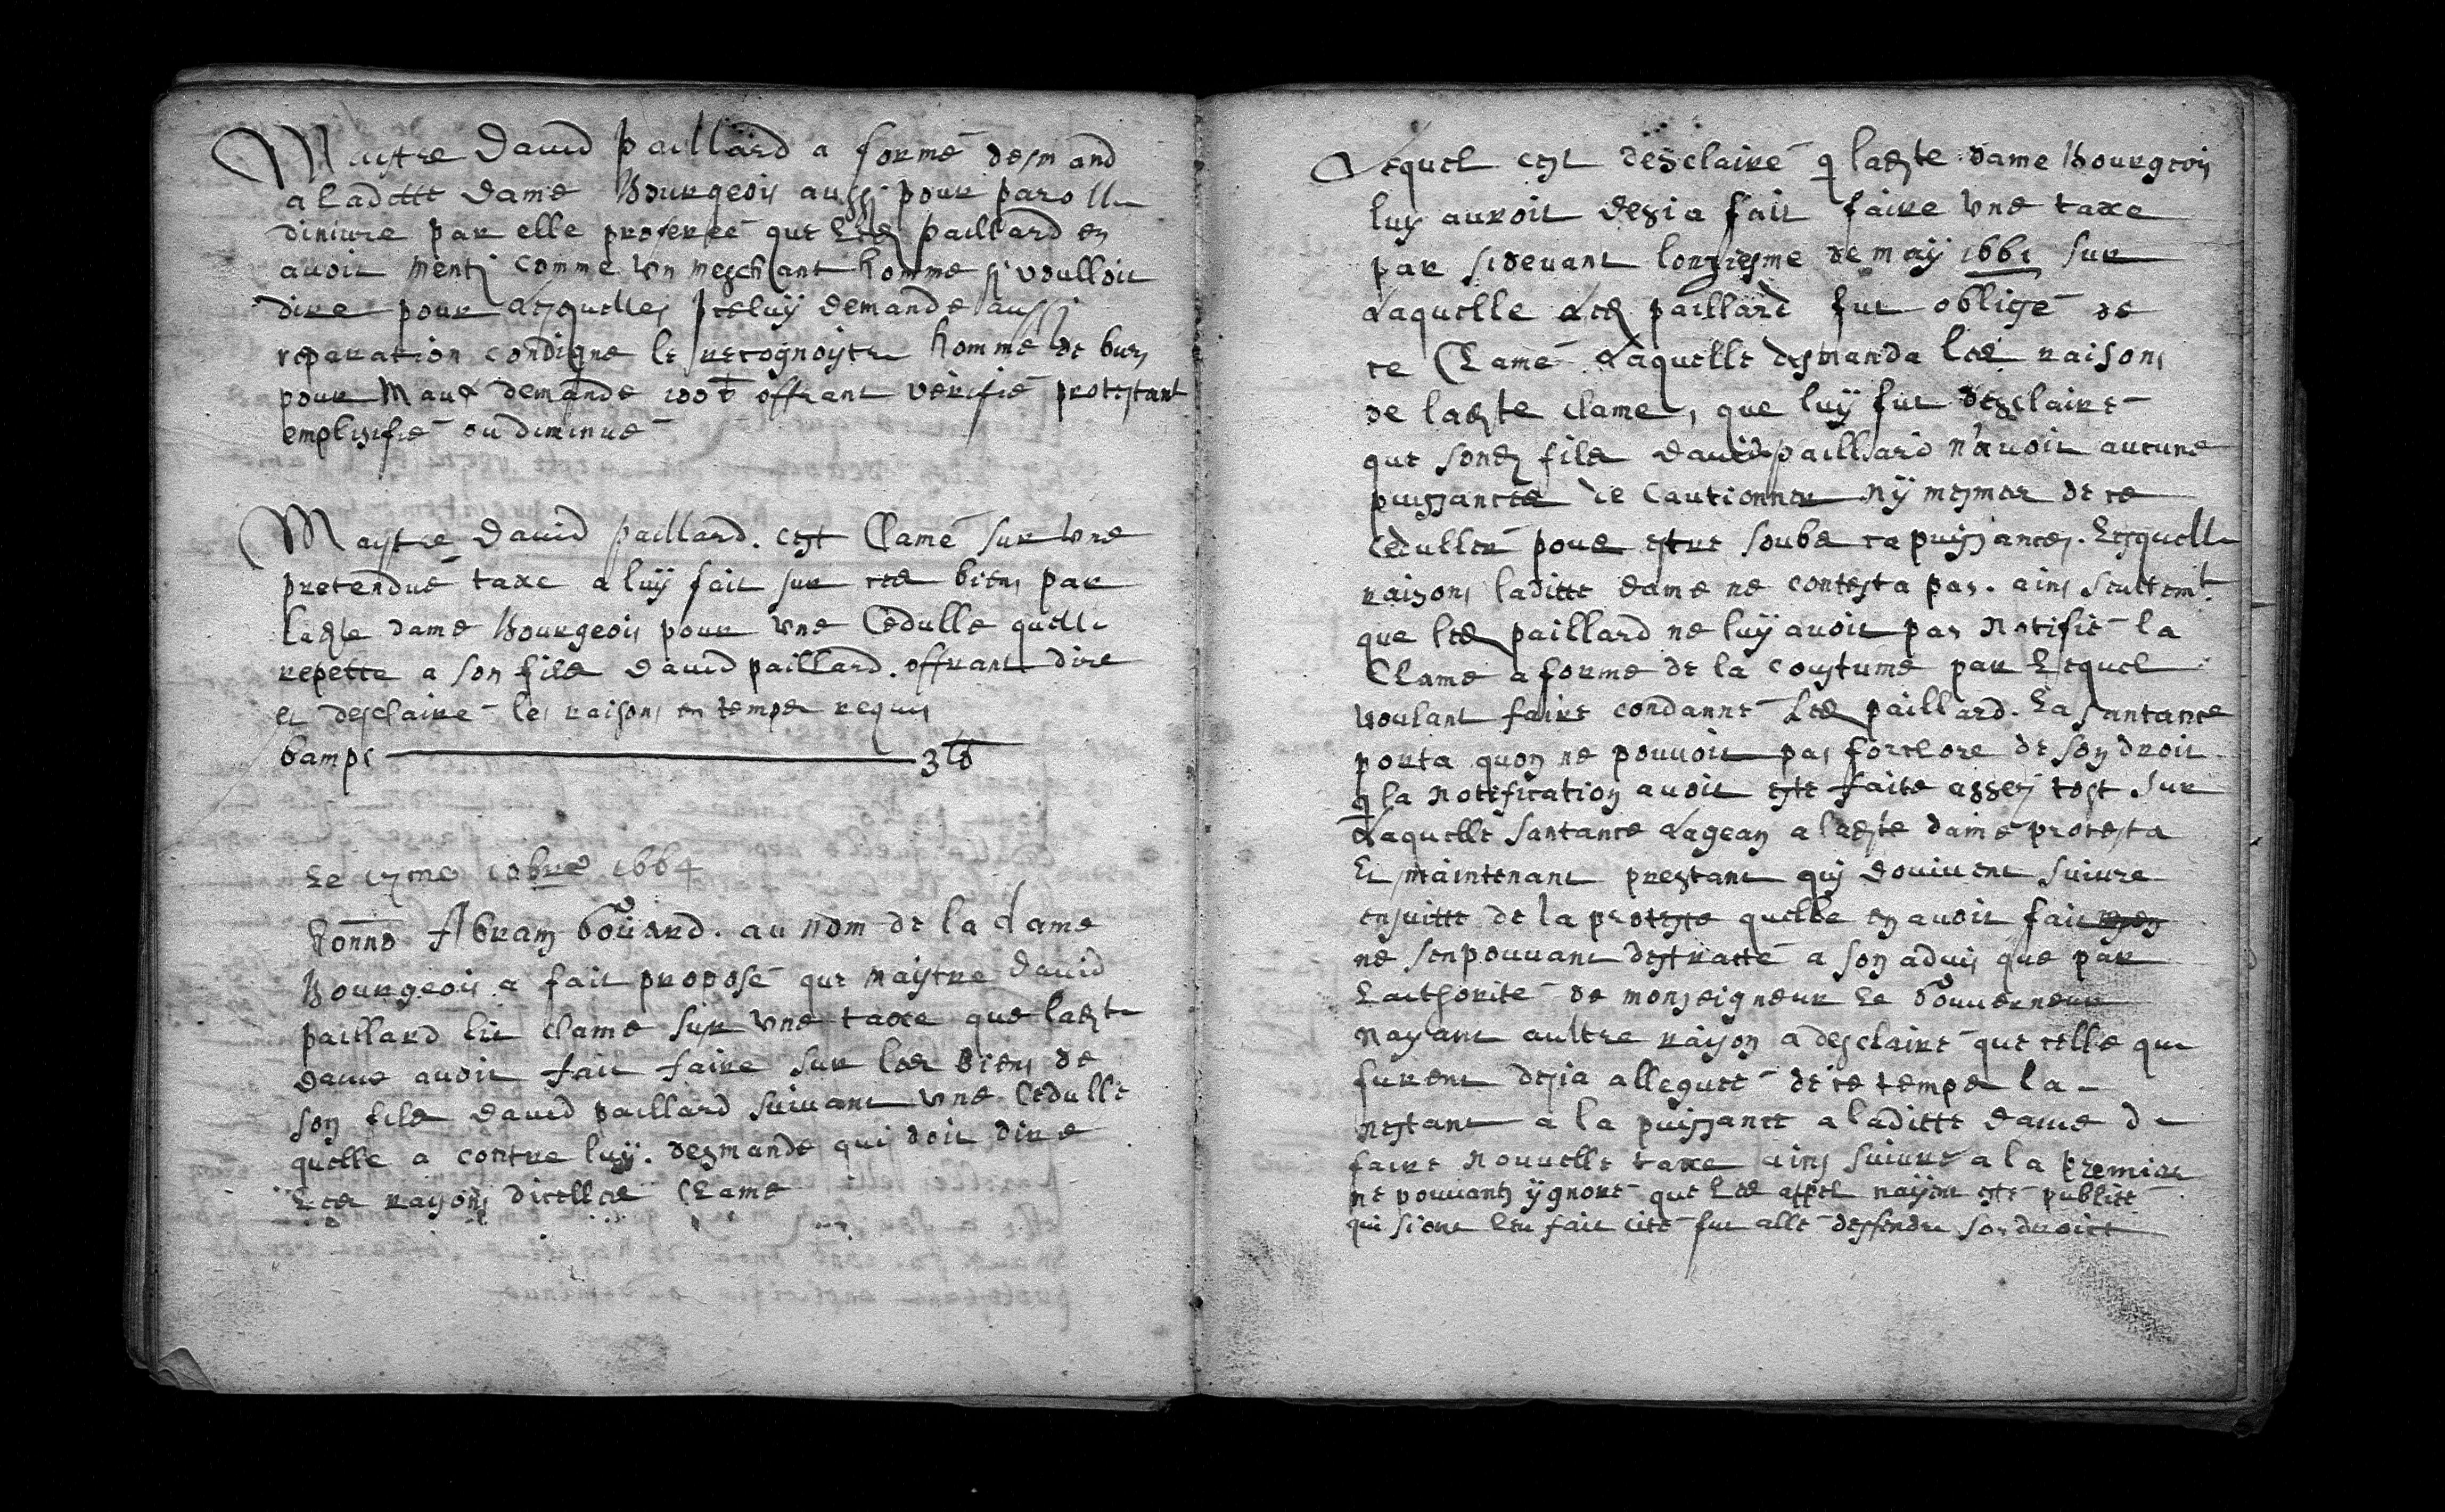 Maistre David paillard a formé desmand
a laditte dame Bourgeois aussi pour parolle
diniure par elle proferee que led paillard en
avoit menti comme un meschant homme sy voulloit
dire pour lesquelles iceluÿ demande aussi
reparation condigne le recognoistre homme de bien
pour Maux demande 100 ℔ offrant verifie protestant
emplisifié ou diminué
Maystre David paillard. cest Clamé sur une
pretendue taxe a luÿ fait sur ces biens par
ladte dame Bourgeois pour une Cedulle quelle
repette a son filz David paillard. offrant dire
et desclairé les raisons en temps requis
bamps 3 ℔
Le 17me 10bre 1664
honno Abram bovard. au nom de la dame
Bourgeois a fait proposé que maystre David
paillard cest clamé sur une taxe que ladte
dame avoit fait faire sur les biens de
son filz David paillard suivant une Cedulle
quelle a contre luÿ. desmande qui doit dire
les raysons dicelle Clame
Lequel cest desclairé q ladte dame Bourgeois
luy auroit desia fait faire une taxe
par sidevant lonziesme de maÿ 1661 sur
laquelle led paillard fut obligé de
ce Clamé Laquelle desmanda les raisons
de ladte clame, que luÿ fut desclaire
que sond filz David paillard n'avoit aucune
puissance de Cautionner nÿ mesmes de ce
Ceduller pour estre soubz sa puissance. Lesquelle
raisons laditte dame ne contesta pas. ains seullemt.
que led paillard ne luÿ avoit pas notifié la
Clame a forme de la coustume par lequel
voulant faire condanné led paillard. La santance
porta quon ne pouvoit pas forclore de son droit
q la notification avoit este faite assez tost sur
Laquelle santance ladte dame protesta
Et maintenant prestant quj doivent suivre
ensuitte de la proteste quelle en avoit fait
ne sen pouvant destratté a son advis que par
Lacthorité de monseigneur Le Gouverneur
nayant aultre rayson a desclaire que celle que
furent desia alleguee de ce temps la
nestant a la puissance a laditte dame de
faire nouvelle taxe ains suivre a la premiere
ne pouvant ÿgnoré que led affer naÿme este publiee
qui sient leu fait cite fut allé deffendre son droict